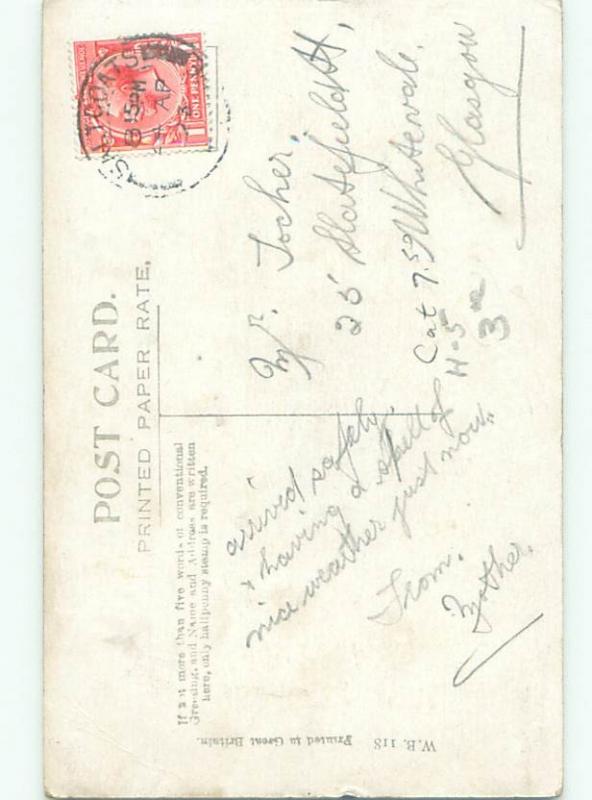 POST CARD.
PRINTED PAPER RATE.
If not more than five words of conventional
Greeting, and Name and Address are written
here, only halfpenny stamp is required.
arrived safely
& having a spell of
nice weather just now.
From.
Mother.
Mr. Locher.
25 Slatefield St,
Whitevale.
Glasgow
Cat 7.59
H-5
3
ONE PENNY
1
SALTCOATS
8 15 PM
AP
W.B. 118 Printed in Great Britain.